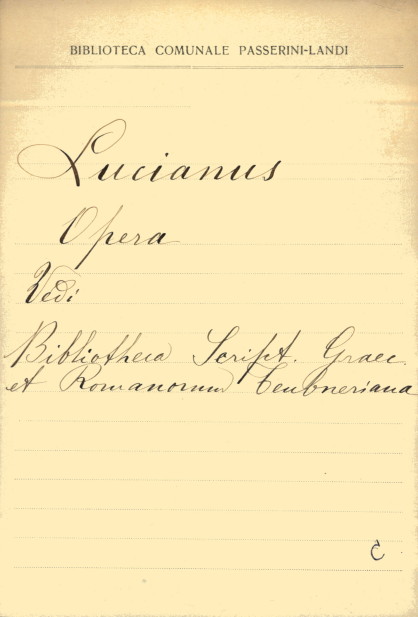 BIBLIOTECA COMUNALE PASSERINI-LANDI
Lucianus
Opera
Vedi
Bibliotheca Script. Graec.
et Romanorum Teubneriana
C